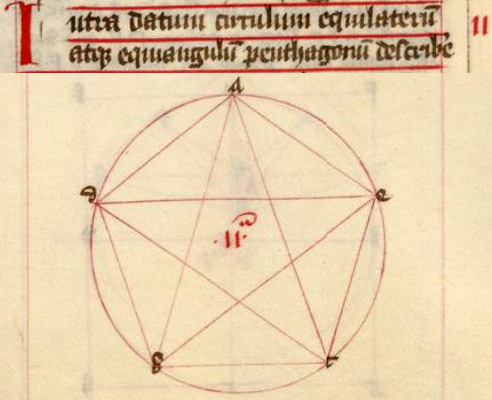 Intra datum circulum equilaterū 11
atqꝫ equiangulū penthagonū describe
a
d e
·11·ᵃ
b c